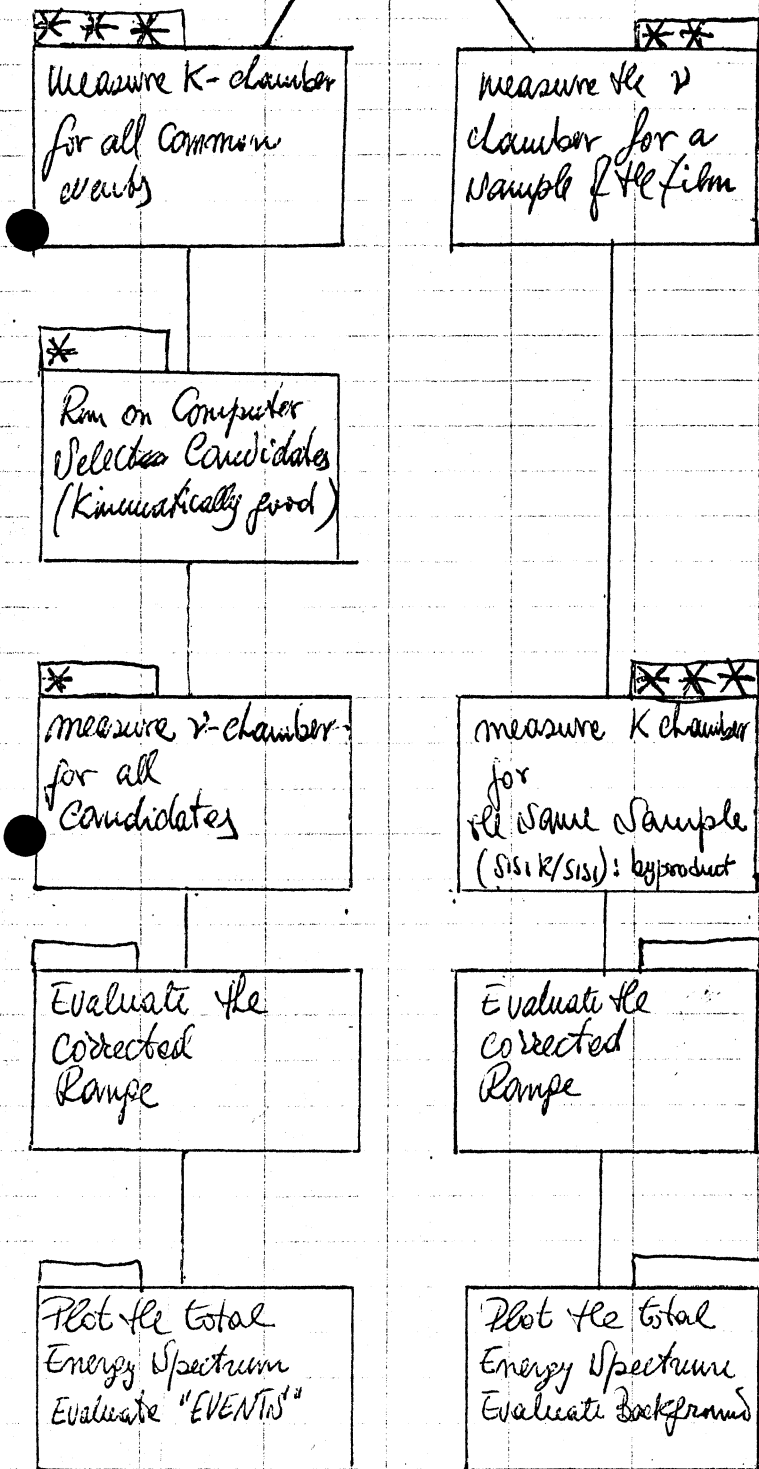 * * *
Measure K-chamber
for all Common
events
*
Run on Computer
Select Candidates
(Kinematically good)
*
measure ν-chamber
for all
Candidates
Evaluate the
Corrected
Range
Plot the total
Energy Spectrum
Evaluate "EVENTS"
* *
measure the ν
chamber for a
sample of the film
* * *
measure K chamber
for
the same sample
(SISI K/SISI): byproduct
Evaluate the
corrected
Range
Plot the total
Energy Spectrum
Evaluate Background